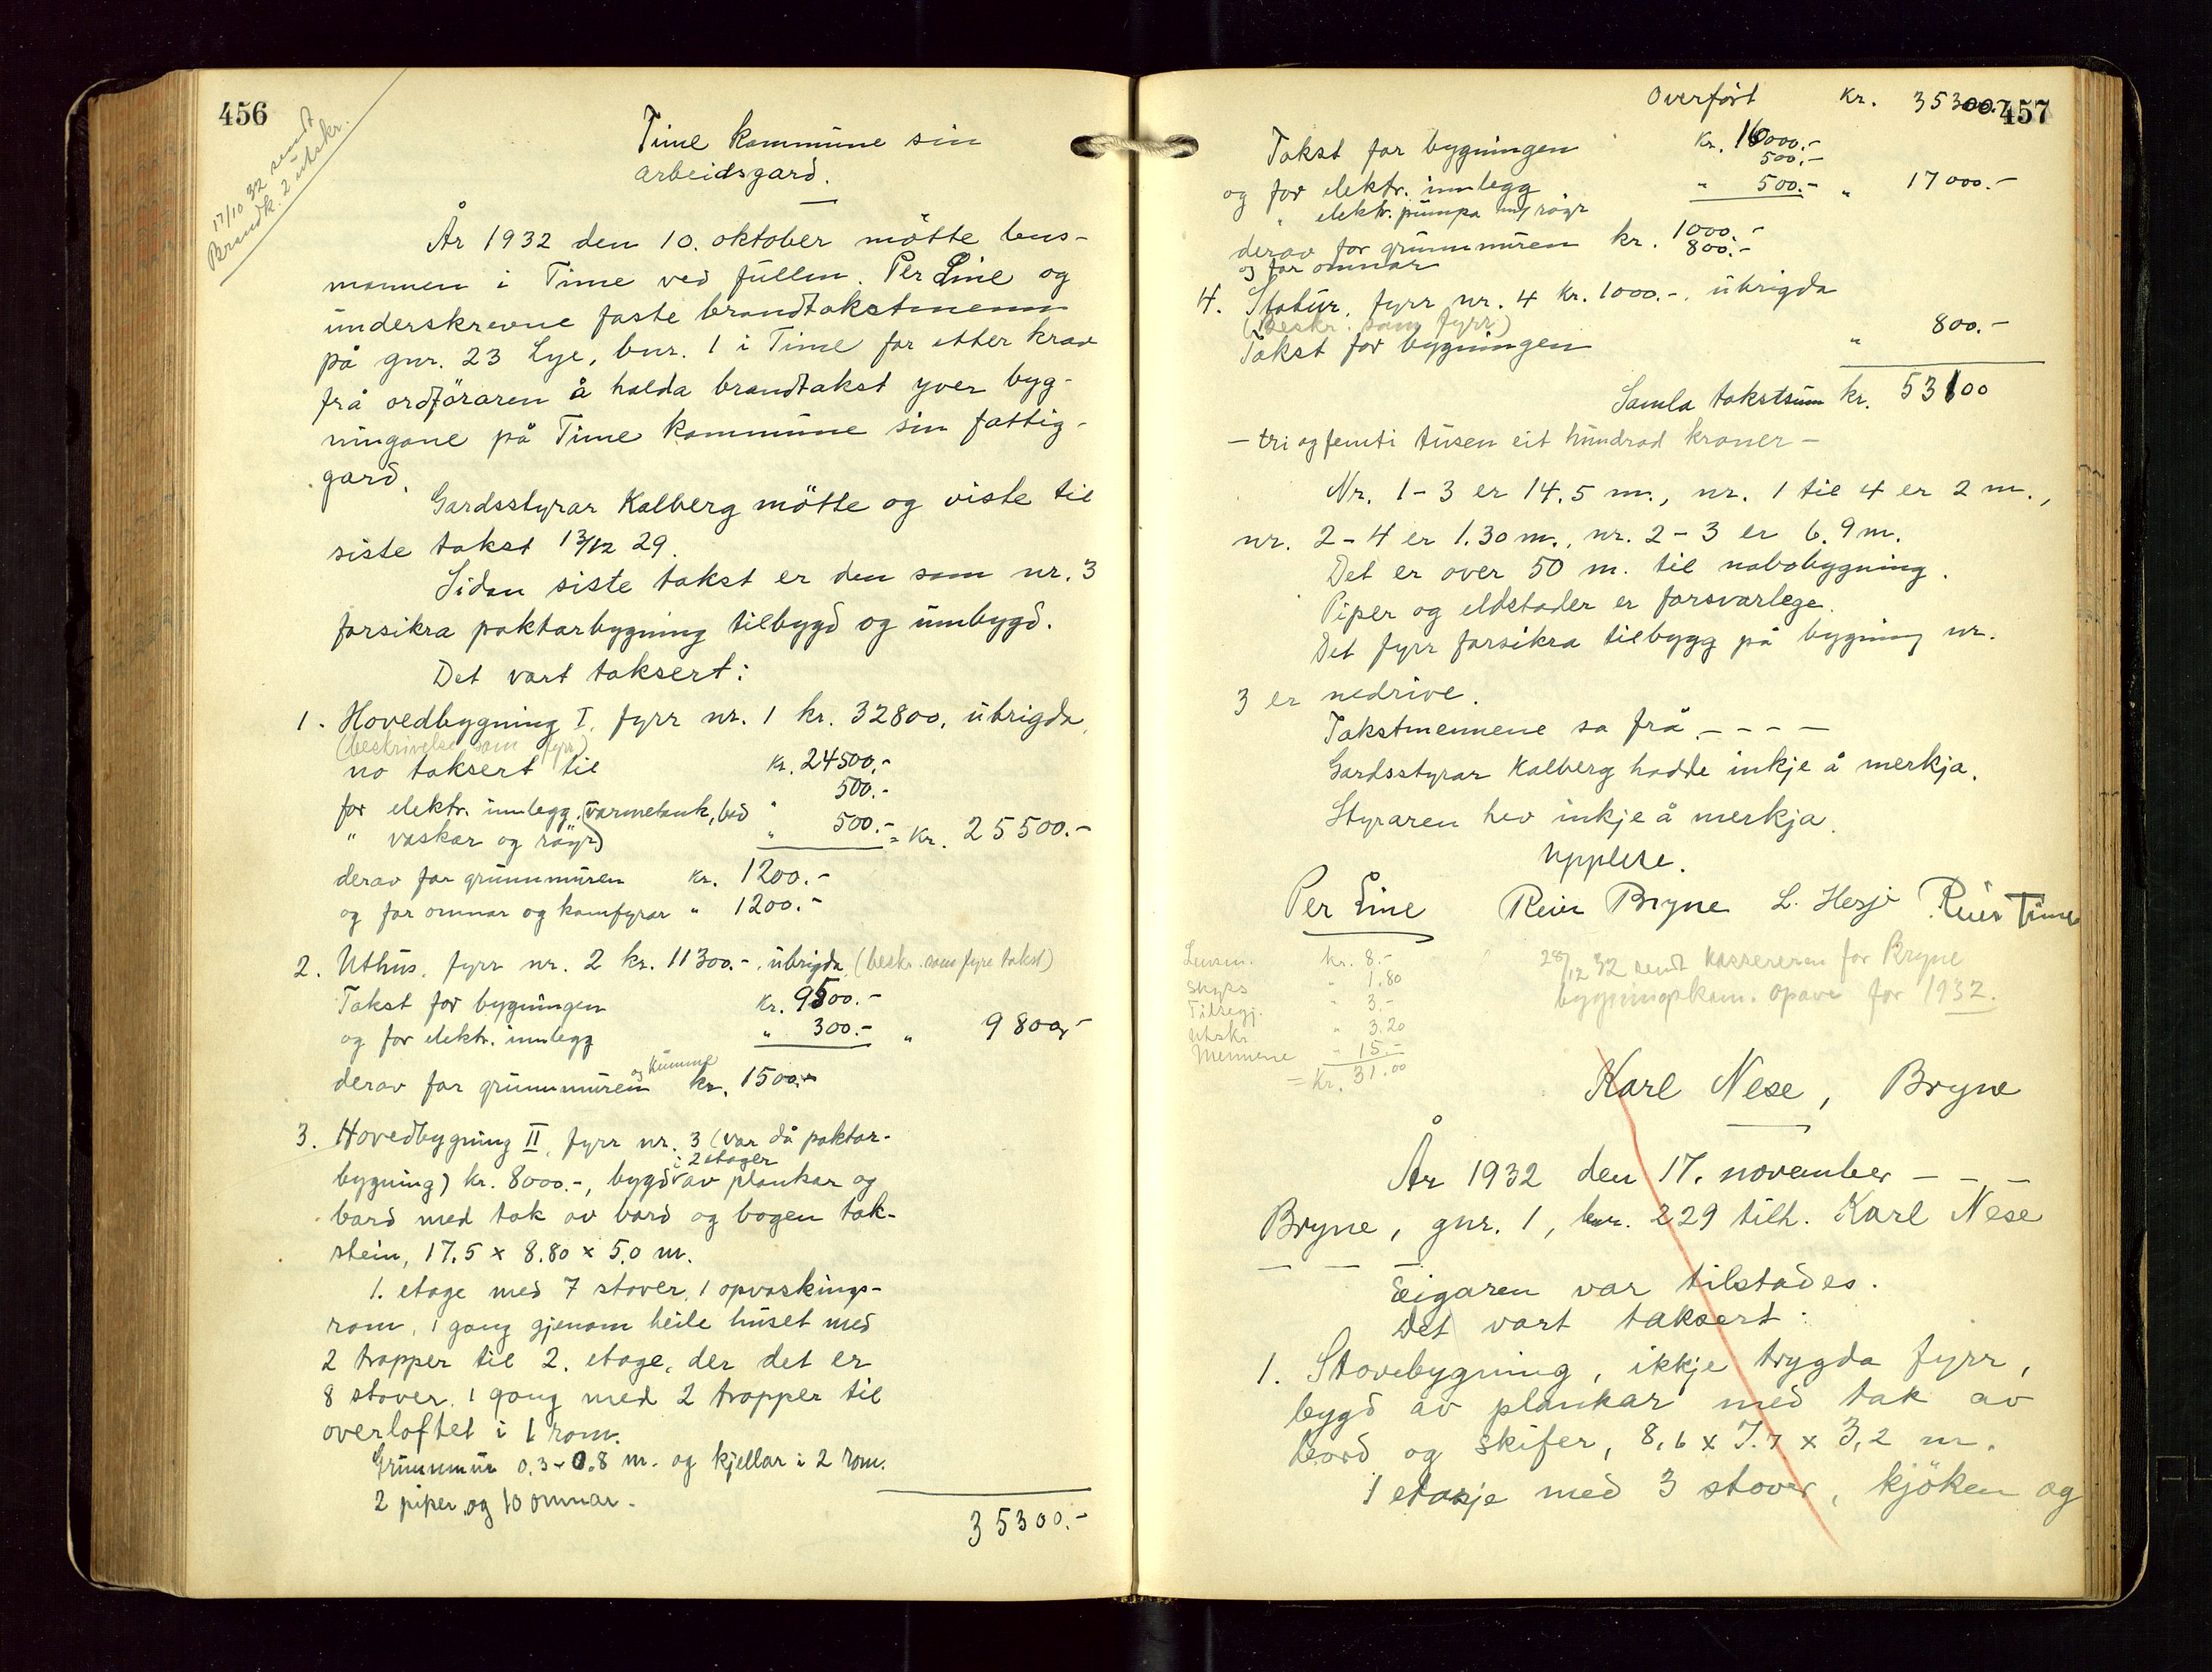 456
17/10 32 sendt
Brandk. 2 utskr.
Time kommune sin
arbeidsgard.
År 1932 den 10. oktober mötte lens-
mannen i Time ved fullm. Per Line og
underskrevne faste brandtakstmenn
på gnr. 23 Lye, bnr. 1 i Time for etter krav
frå ordföraren å halda brandtakst yver byg-
ningane på Time kommune sin fattig-
gard.
Gardsstyrar Kalberg mötte og viste til
siste takst 13/12 29.
Sidan siste takst er den som nr. 3
forsikra paktarbygning tilbygd og umbygd.
Det vart taksert:
1. Hovedbygning I, fyrr nr. 1 kr. 32800, ubrigda,
(beskrivelse som fyrr)
no taksert til kr. 24500,-
for elektr. innlegg. " 500.-
(varmetank, bad
" vaskar og röyr) " 500.- = kr. 25500.-
derav for grunnmuren kr. 1200.-
og for omnar og komfyrar " 1200.-
2. Uthus, fyrr nr. 2 kr. 11300.-, ubrigda, (beskr. som fyrr takst)
Takst for bygningen kr. 9500.-
og for elektr. innlegg " 300.- " 9800,-
og kumme
derav for grunnmuren kr. 1500.-
3. Hovedbygning II, fyrr nr. 3 (var då paktar-
i 2 etager
bygning) kr. 8000.-, bygd av plankar og
bord med tak av bord og bogen tak-
stein, 17.5 x 8.80 x 5.0 m.
1. etage med 7 stover, 1 opvaskings-
rom, 1 gang gjenom heile huset med
2 trapper til 2. etage, der det er
8 stover, 1 gang med 2 trapper til
overloftet i 1 rom.
Grunnmur 0.3 - 0.8 m. og kjellar i 2 rom.
2 piper og 10 omnar.
35300.-
457
Overfört kr. 35300.-
Takst for bygningen kr. 16000.-
500.-
og for elektr. innlegg " 500.- " 17000.-
" elektr. pumpa m/ röyr
derav for grunnmuren kr. 1000.-
og for omnar 800.-
4. Stabur, fyrr nr. 4 kr. 1000.-, ubrigda
(Beskr. som fyrr)
Takst for bygningen " 800.-
Samla takstsum kr. 53100
- tri og femti tusen eit hundrad kroner -
Nr. 1-3 er 14.5 m., nr. 1 til 4 er 2 m.,
nr. 2-4 er 1.30 m., nr. 2-3 er 6.9 m.
Det er over 50 m. til nabobygning.
Piper og eldstader er forsvarlege.
Det fyrr forsikra tilbygg på bygning nr.
3 er nedrive.
Takstmennene sa frå - - - -
Gardsstyrar Kalberg hadde inkje å merkja.
Styraren hev inkje å merkja.
Upplese.
Per Line Reier Bryne L. Hesjo Reier Time
Lensm. kr. 8.-
Skyss " 1.80
Tilsegj. " 3.-
Utskr. " 3.20
Mennene " 15.-
= Kr. 31.00
28/12 32 sendt kassereren for Bryne
bygningskom. opave for 1932.
Karl Nese, Bryne
År 1932 den 17. november - - -
Bryne, gnr. 1, bnr. 229 tilh. Karl Nese
- - -
Eigaren var tilstades.
Det vart taksert:
1. Stovebygning, ikkje trygda fyrr,
bygd av plankar med tak av
bord og skifer, 8,6 x 7.7 x 3,2 m.
1 etasje med 3 stover, kjöken og